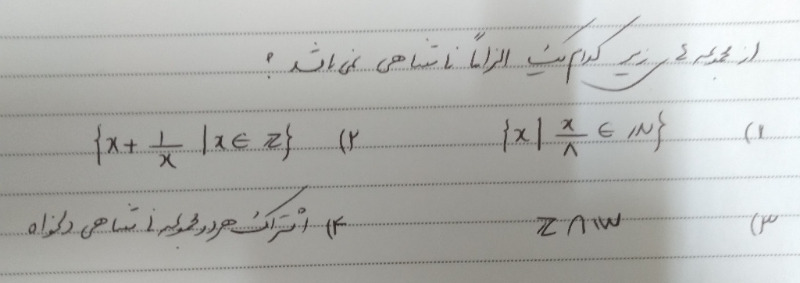 از مجموعه های زیر کدام یک الزاماً نامتناهی نمی باشد ؟
۱) {x | x/۸ ∈ IN} ۲) {x + 1/x | x ∈ Z}
۳) Z ∩ W ۴) اشتراک هر دو مجموعه نامتناهی دلخواه